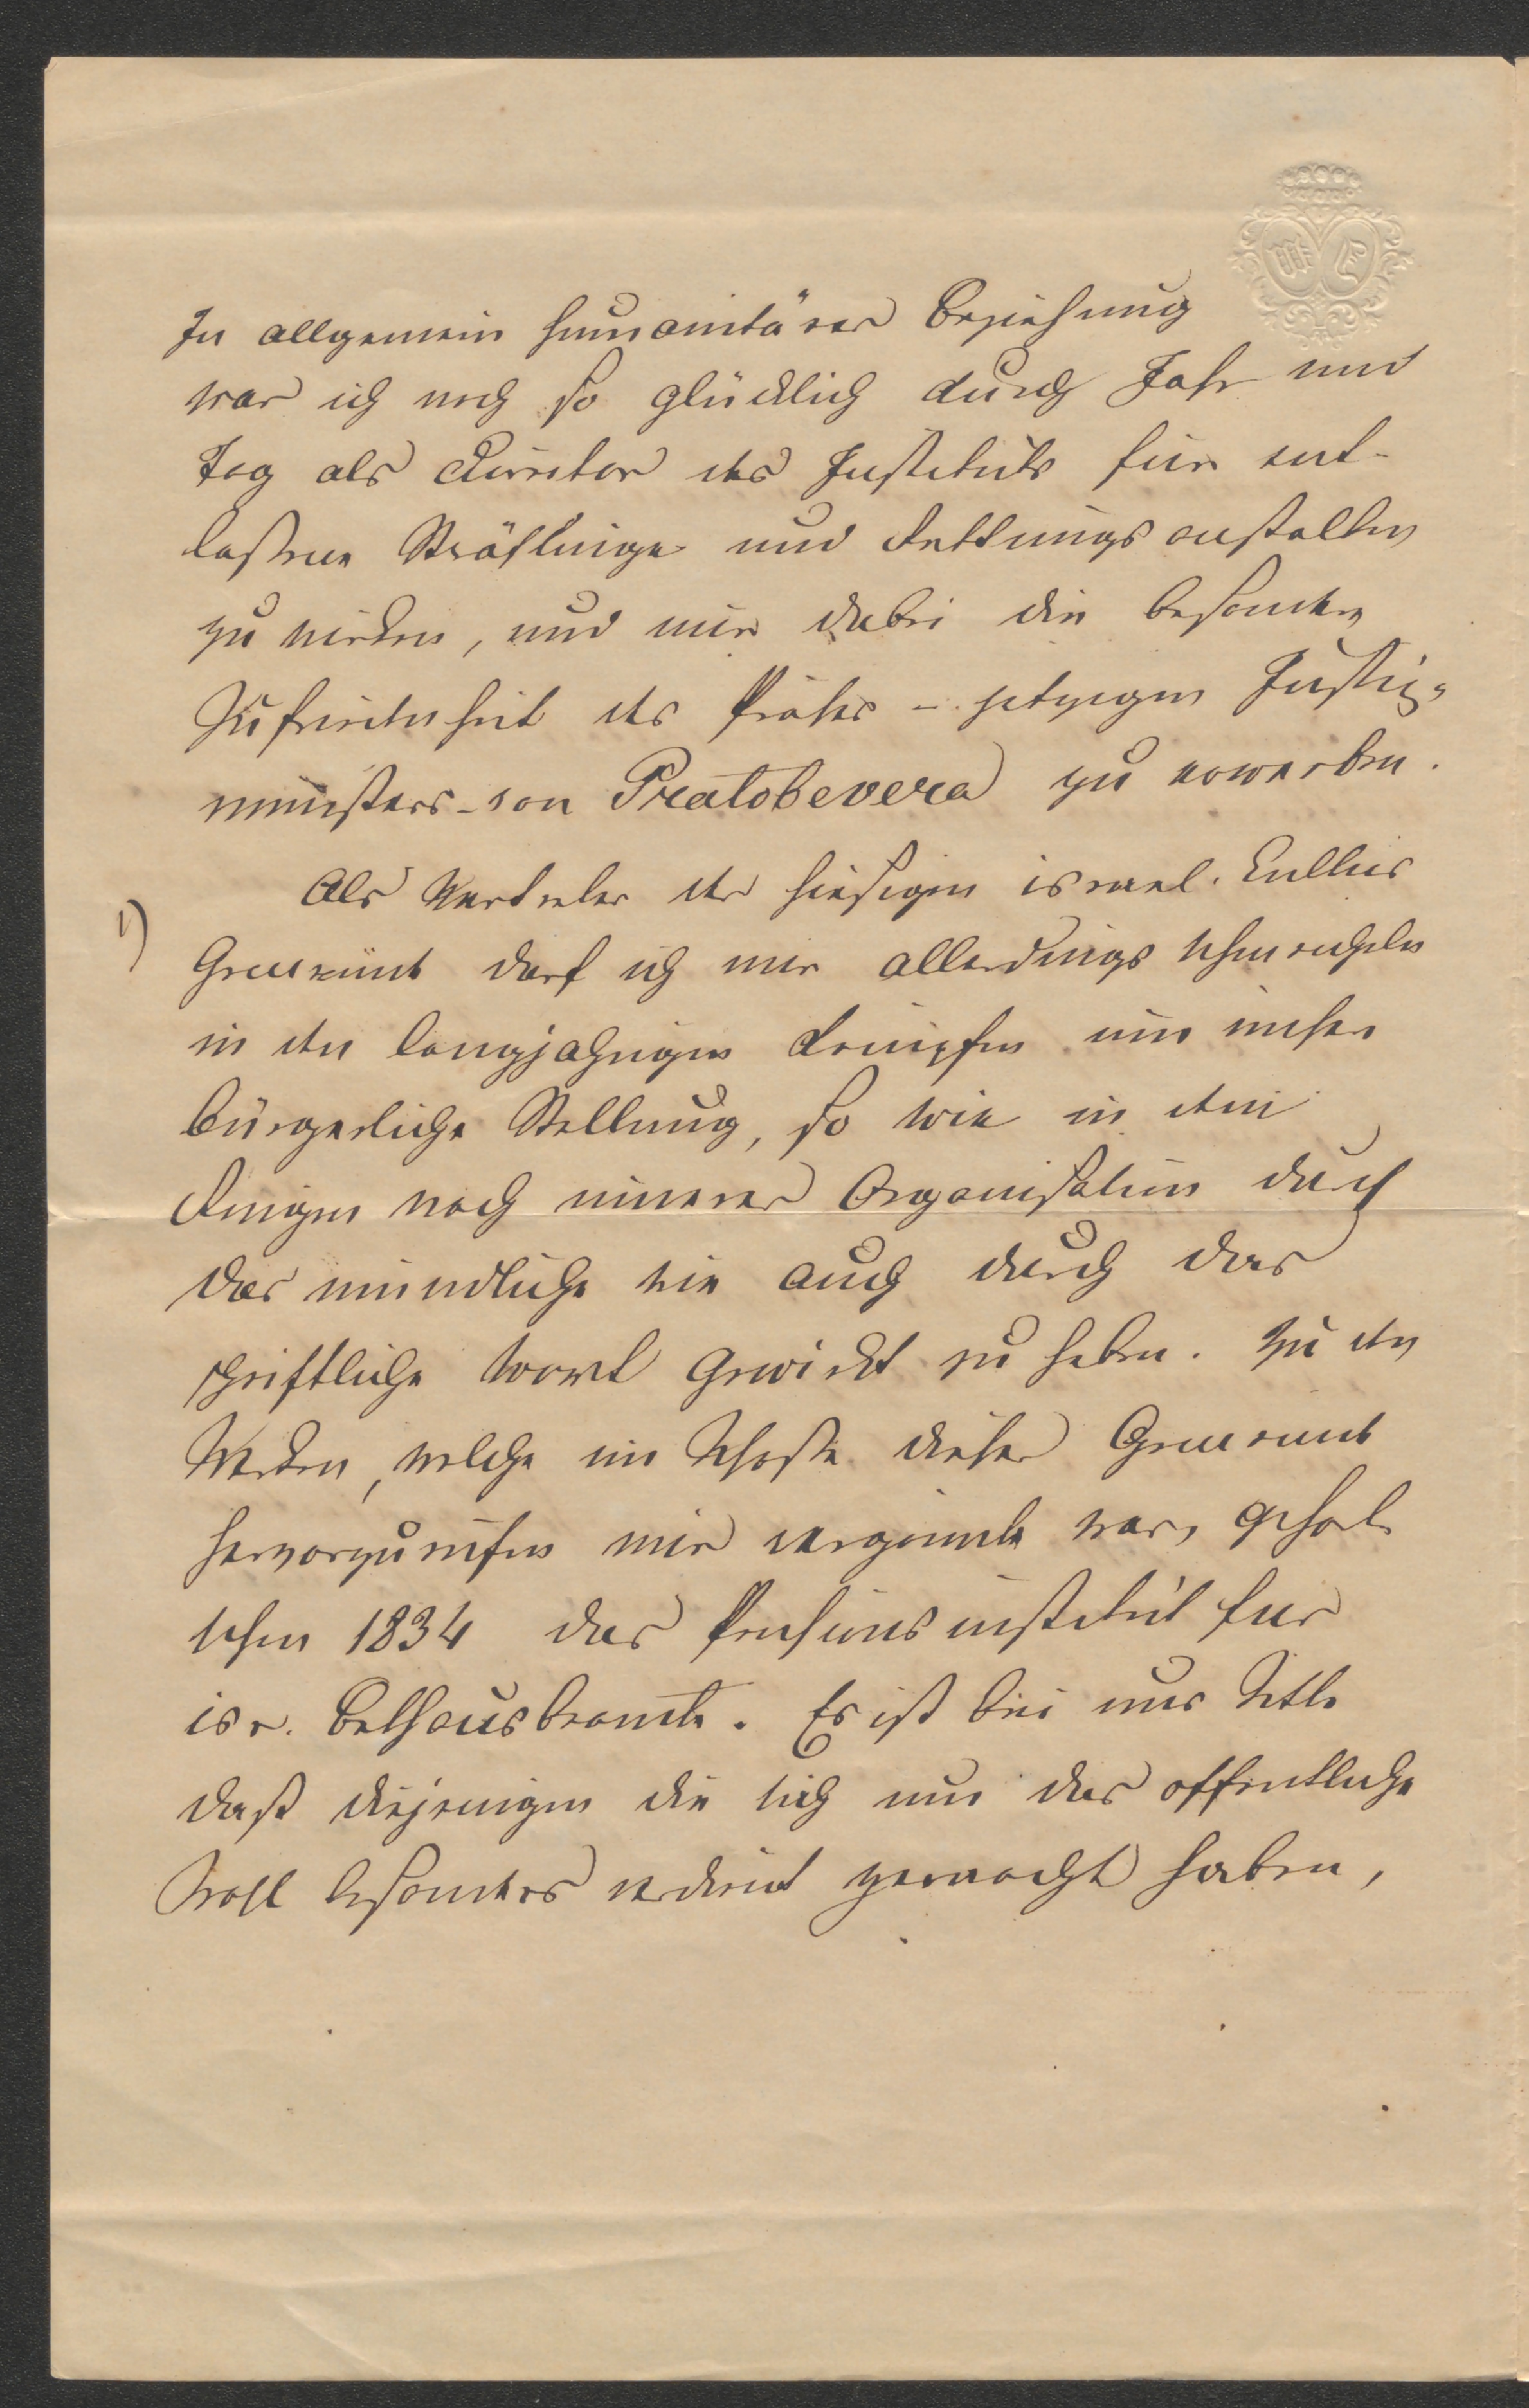 In allgemein humanitärer Beziehung
war ich noch so glücklich durch Jahr und
Tag als Director des Instituts für ent-
laßene Sträflinge und Rettungsanstalten
zu wirken, und mir dabei die besondere
Zufriedenheit des Präses – jetzigen Justiz-
ministers – von Pratobevera zu erwerben.
Als Vertreter der hiesigen israel. Cultus
1)
Gemeinde darf ich mir allerdings schmeicheln
in den langjahrigen Kämpfen um unsere
bürgerliche Stellung, so wie in dem
Ringen nach innerer Organisation durch
das mündliche wie auch durch das
schriftliche Wort gewirkt zu haben. Zu den
Werken, welche im Schoße dieser Gemeinde
hervorzurufen mir vergönnt war, gehört
schon 1834 das Pensionsinstitut für
isr. Bethausbeamte. Es ist bei uns Sitte
daß diejenigen die sich um das offentliche
Wohl besonders verdient gemacht haben,